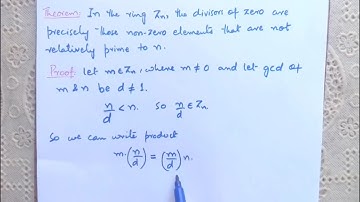 Theorem: In the ring Zn, the divisors of zero are
precisely those non-zero elements that are not
relatively prime to n.
Proof: let m∈Zn, where m ≠ 0 and let gcd of
m & n be d ≠ 1.
n/d < n. so n/d ∈ Zn.
So we can write product
m·(n/d) = (m/d) n.